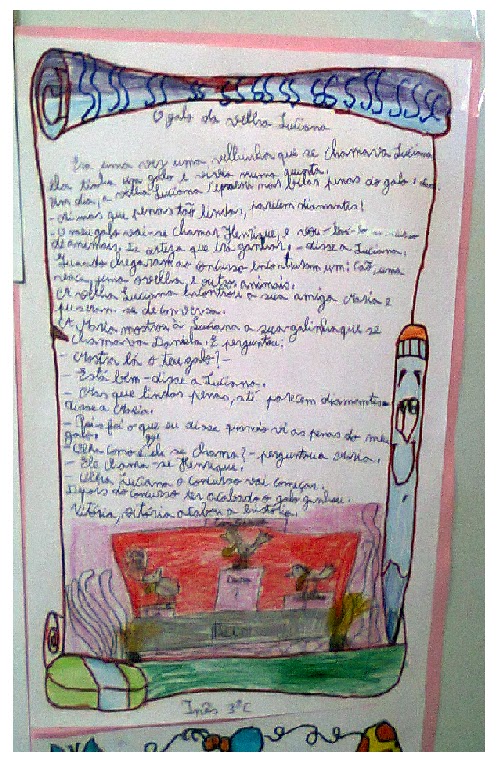 O galo da velha Luciana
Era uma vez uma velhinha que se chamava Luciana
Ela tinha um galo e vivia numa quinta.
Um dia, a velha Luciana reparou nas belas penas do galo e disse:
- Ai mas que penas tão lindas, parecem diamantes!
- O meu galo vai-se chamar Henrique, e vou levá-lo ao concurso
de animais. De certeza que irá ganhar. - disse a Luciana.
Quando chegaram ao concurso encontraram um: Cão, uma
vaca, uma ovelha e outros animais.
A velha Luciana encontrou a sua amiga Maria e
puseram-se de conversa.
A Maria mostrou à Luciana a sua galinha que se
chamava Daniela. E perguntou:
- Mostra lá o teu galo? -
- Está bem - disse a Luciana.
- Mas que lindas penas, até parecem diamantes -
disse a Maria.
- Pois foi o que eu disse quando vi as penas do meu
galo.
- Olha como é que ele se chama? - perguntou a Maria.
- Ele chama-se Henrique.
- Olha Luciana o concurso vai começar.
Depois do concurso ter acabado o galo ganhou.
Vitória, vitória acabou a história.
Inês 3ºC